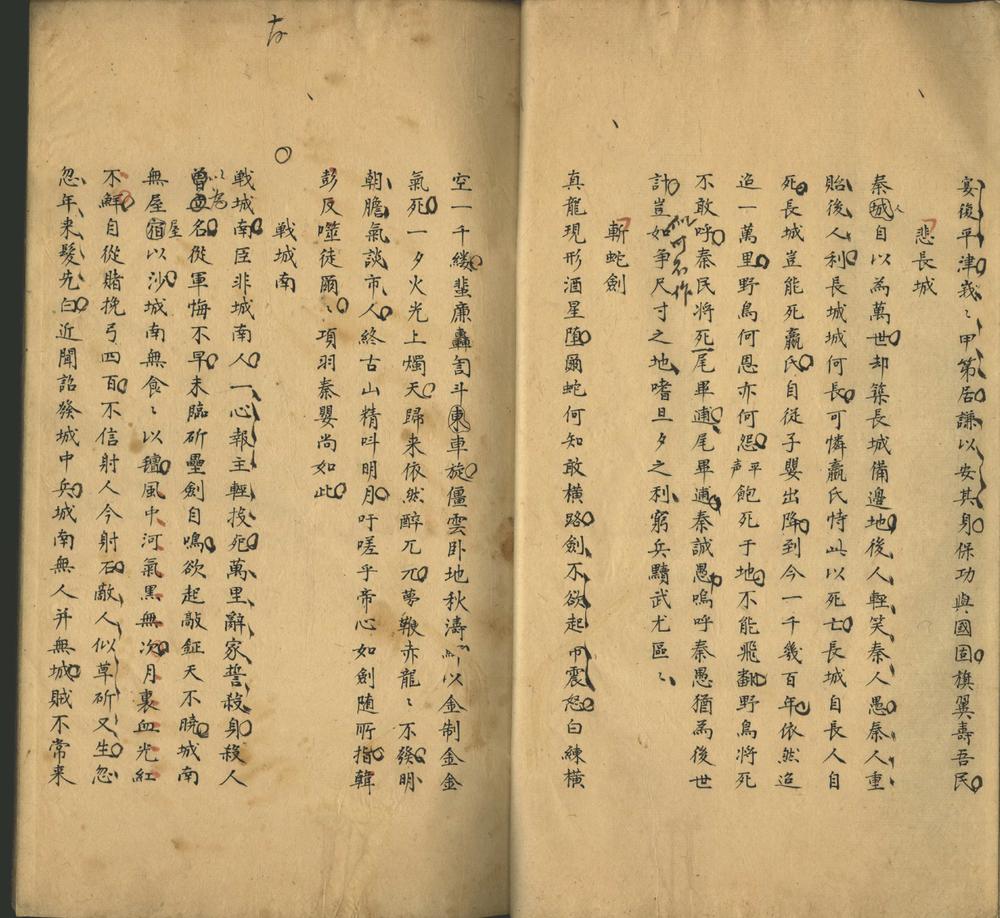 宴後平津峩〻甲第居謙以安其身保功與國固橫翼壽吾民
悲長城
秦城人自以為萬世却築長城備邊地後人輕笑秦人愚秦人重
貽後人利長城城何長可憐嬴氏恃此以死亡長城自長人自
死長城豈能死嬴氏自從子嬰出降到今一千幾百年依然迢
迢一萬里野鳥何恩亦何怨平声飽死于地不能飛翻野鳥將死
不敢呼秦民將死尾畢逋尾畢逋秦誠愚嗚呼秦愚猶為後世
計豈如争尺寸之地嗜旦夕之利窮兵黷武尤區〻
似可不作
斬蛇劍
真龍現形酒星墮爾蛇何知敢橫路劍不欲起帀震怒白練橫
空一千縷蜚廉轟訇斗東車旋僵雲卧地秋濤以金制金金
氣死一夕火光上燭天歸来依然醉兀兀夢鞭赤龍〻不發明
朝膽氣談市人終古山精呌明月吁嗟乎帝心如劍随所指韓
彭反噬徒爾〻項羽秦嬰尚如此
戦城南
戰城南臣非城南人一心報主輕投死萬里辭家誓殺身殺人
曾以為名從軍悔不早未臨斫壘劍自鳴欲起敲鉦天不曉城南
無屋宿屋以沙城南無食〻以氊風中河氣黑無次月裏血光紅
不鮮自從賭挽弓四百不信射人今射石敵人似草斫又生忽
忽年来髮先白近聞詔發城中兵城南無人并無城賊不常来